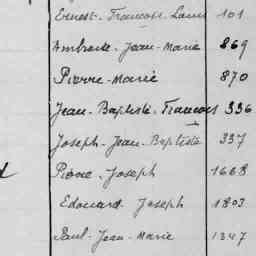 Ernest-François-Louis 101
Ambroise-Jean-Marie 869
Pierre-Marie 870
Jean-Baptiste-François 336
Joseph-Jean-Baptiste 337
Pierre-Joseph 1668
Edouard Joseph 1803
Paul-Jean-Marie 1347